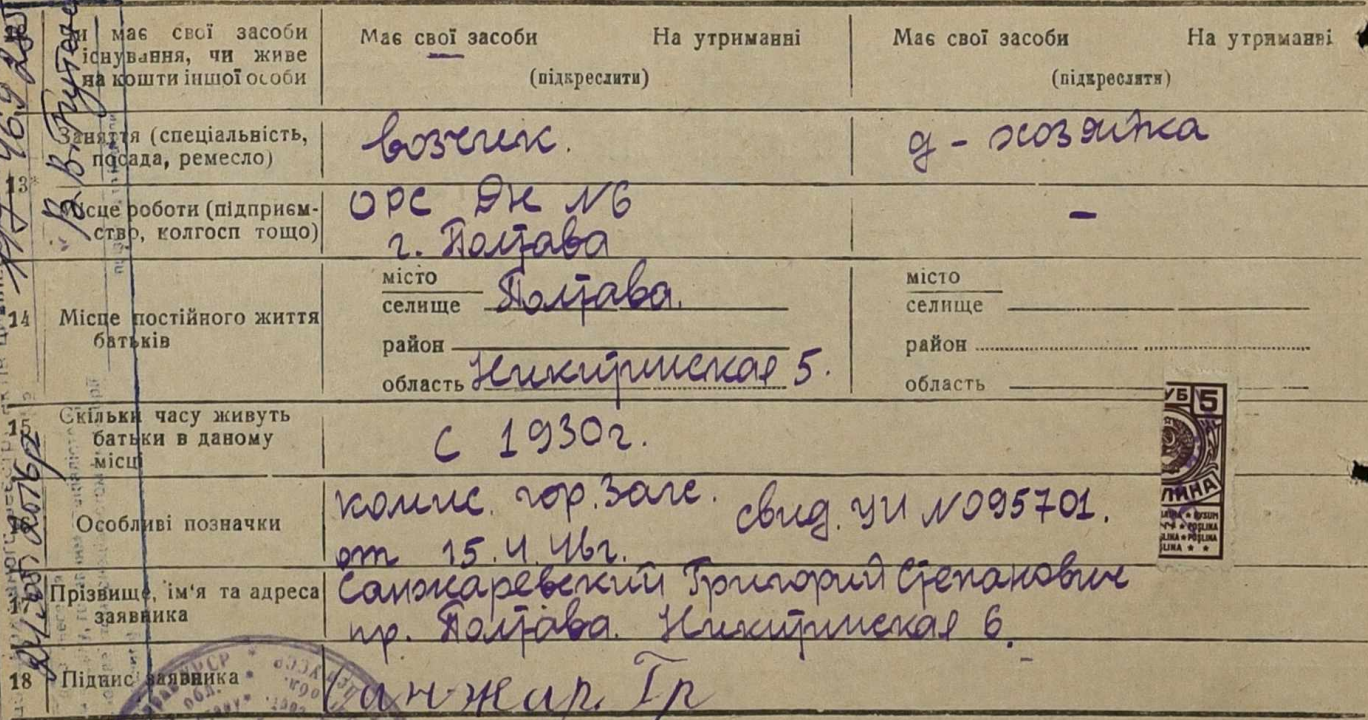 має свої засоби
існування, чи живе
на кошти іншої особи
Має свої засоби На утриманні
(підкреслити)
Має свої засоби На утриманні
(підкреслити)
Заняття (спеціальність,
посада, ремесло)
возчик.
д - хозяйка
13
Місце роботи (підприєм-
ство, колгосп тощо)
ОРС ДН №6
г. Полтава
-
14 Місце постійного життя
батьків
місто
селище Полтава.
район
область Никитинская 5.
місто
селище
район
область
15 Скільки часу живуть
батьки в даному
місці
С 1930г.
Особливі позначки
комис. гор. Загс. свид. УИ №095701.
от 15.4.46г.
17 Прізвище, ім'я та адреса
заявника
Санжаревский Григорий Степанович
пр. Полтава. Никитинская 6.
18 Підпис заявника
Санжар Гр
УБ 5